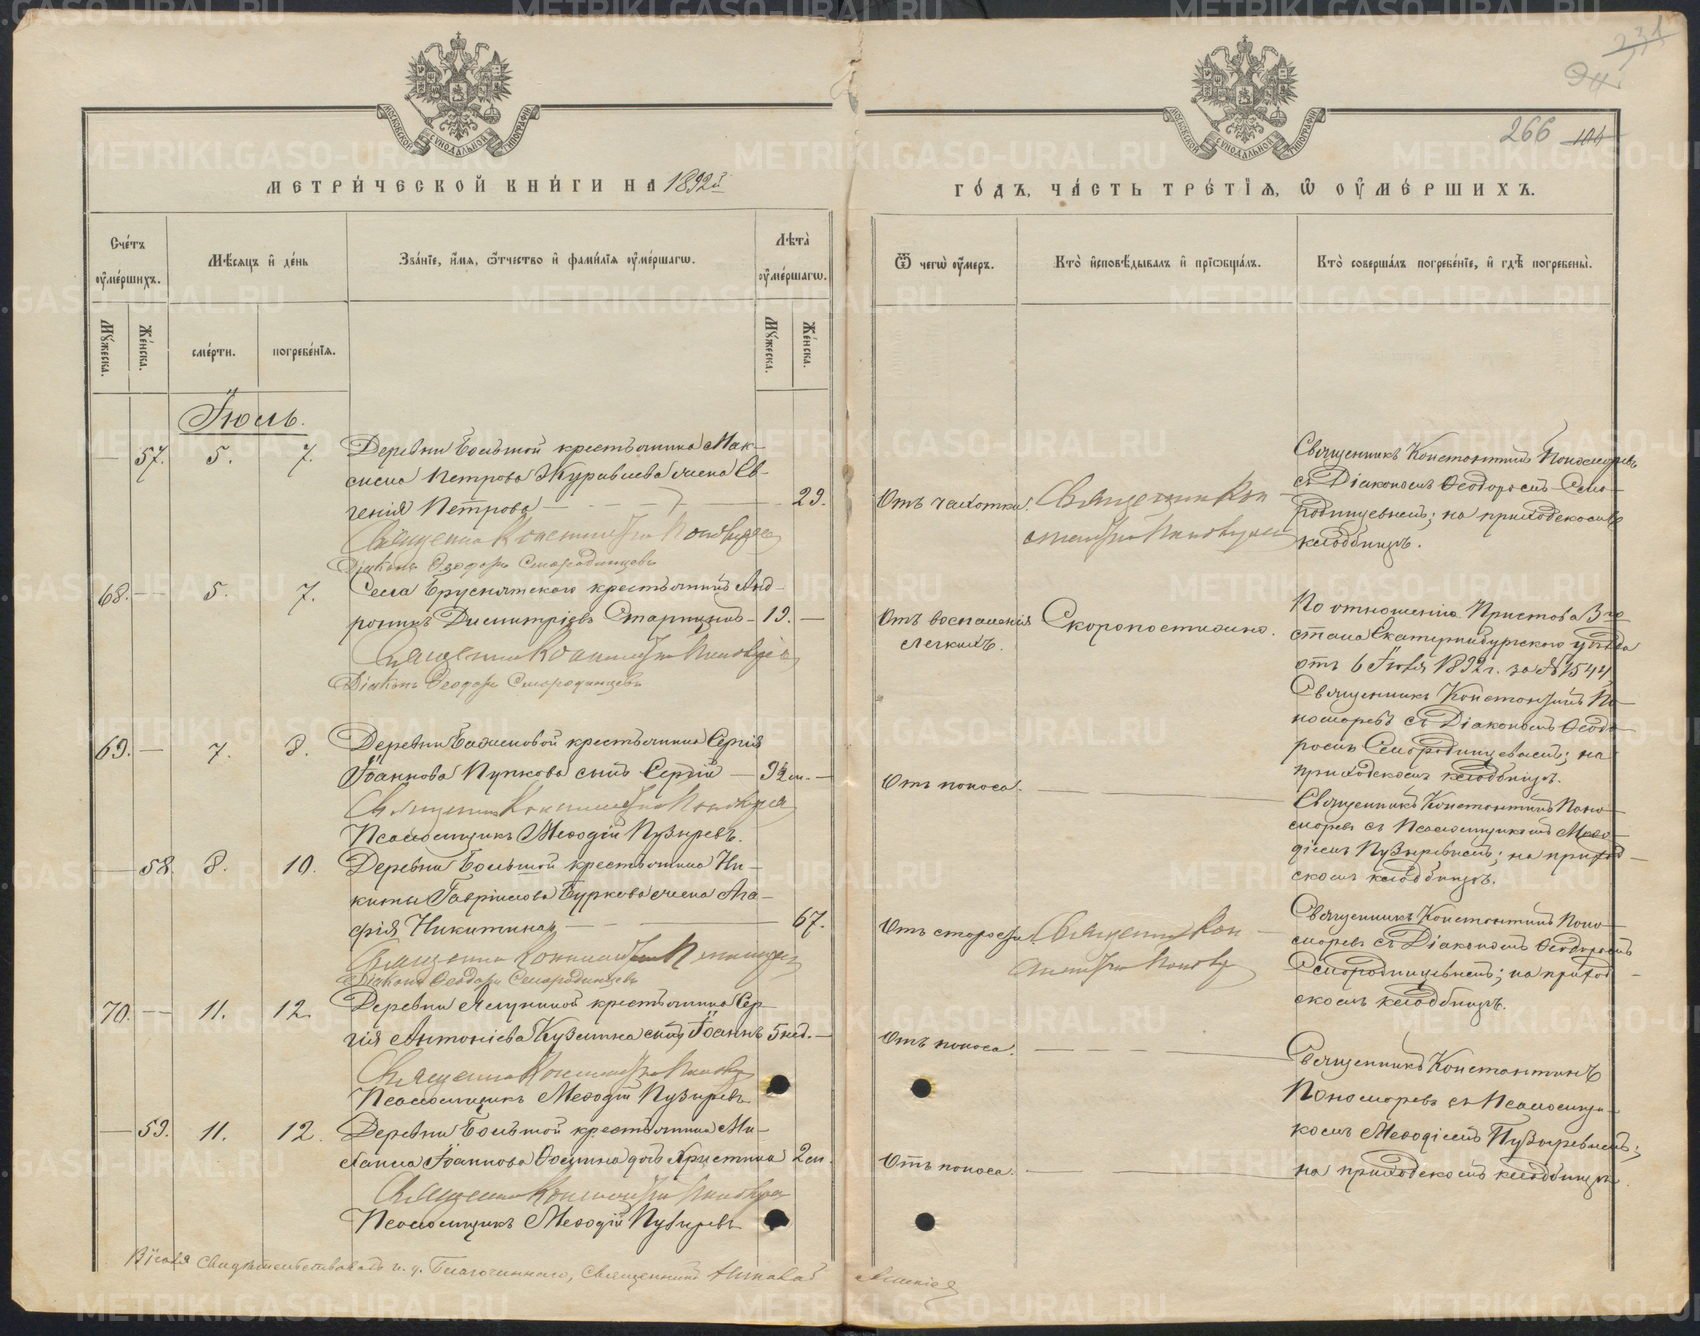 231
94
266 100
МОСКОВСКОЙ СѴНОДАЛЬНОЙ ТИПОГРАФІИ
МОСКОВСКОЙ СѴНОДАЛЬНОЙ ТИПОГРАФІИ
МЕТРИ́ЧЕСКОЙ КНИ́ГИ НА 1892й
ГО́ДЪ, ЧА́СТЬ ТРЕ́ТЇѦ, Ѡ ОУ҆МЕ́РШИХЪ.
Сче́тъ оу҆ме́ршихъ.
Мѣ́сѧцъ и҆ де́нь
Зва́нїе, и҆́мѧ, ѻ҆́тчество и҆ фами́лїѧ оу҆ме́ршагѡ.
Лѣ́та̀ оу҆ме́ршагѡ.
Ѿ чегѡ̀ оу҆́меръ.
Кто̀ и҆сповѣ́дывалъ и҆ прїѡбща́лъ.
Кто̀ соверша́лъ погребе́нїе, и҆ гдѣ̀ погребены̀.
Мꙋ́жеска. Же́нска. сме́рти. погребе́нїѧ. Мꙋ́жеска. Же́нска.
Іюль.
— 57. 5. 7. Деревни Большой крестьянина Мак-
сима Петрова Журавлева жена Ев-
генія Петрова — 29.
Священникъ Константинъ Пономаревъ
Діаконъ Ѳеодоръ Смородинцевъ
Отъ чахотки. Священникъ Кон-
стантинъ Пономаревъ
Священникъ Константинъ Пономаревъ
съ Діакономъ Ѳеодоромъ Смо-
родинцевымъ; на приходскомъ
кладбищѣ.
68. — 5. 7. Села Бруснятскаго крестьянинъ Анд-
роникъ Димитріевъ Старицынъ — 19. —
Священникъ Константинъ Пономаревъ
Діаконъ Ѳеодоръ Смородинцевъ
Отъ воспаленія
легкихъ.
Скоропостижно.
По отношенію Пристава 3го
стана Екатеринбургскаго уѣзда
отъ 6 Іюля 1892 г. за № 1544
Священникъ Константинъ По-
номаревъ съ Діакономъ Ѳеодо-
ромъ Смородинцевымъ; на
приходскомъ кладбищѣ.
69. — 7. 8. Деревни Баженовой крестьянина Сергія
Іоаннова Пупкова сынъ Сергій — 9½ м. —
Священникъ Константинъ Пономаревъ
Псаломщикъ Меѳодій Пузыревъ.
Отъ поноса.
Священникъ Константинъ Поно-
маревъ съ Псаломщикомъ Меѳо-
діемъ Пузыревымъ; на приход-
скомъ кладбищѣ.
— 58. 8. 10. Деревни Большой крестьянина Ни-
киты Гавріилова Буркова жена Ага-
фія Никитина — 67.
Священникъ Константинъ Пономаревъ
Діаконъ Ѳеодоръ Смородинцевъ
Отъ старости. Священникъ Кон-
стантинъ Пономаревъ
Священникъ Константинъ Поно-
маревъ съ Діакономъ Ѳеодоромъ
Смородинцевымъ; на приход-
скомъ кладбищѣ.
70. — 11. 12. Деревни Ялуниной крестьянина Сер-
гія Антоніева Кузмина сынъ Іоаннъ 5 нед. —
Священникъ Константинъ Пономаревъ
Псаломщикъ Меѳодій Пузыревъ
Отъ поноса.
Священникъ Константинъ
Пономаревъ съ Псаломщи-
комъ Меѳодіемъ Пузыревымъ;
на приходскомъ кладбищѣ.
— 59. 11. 12. Деревни Большой крестьянина Ми-
хаила Іоаннова Ѳомина дочь Христина 2 м.
Священникъ Константинъ Пономаревъ
Псаломщикъ Меѳодій Пузыревъ
Отъ поноса.
Свидѣтельствовалъ и. д. Благочиннаго, Священникъ Николай
METRIKI.GASO-URAL.RU